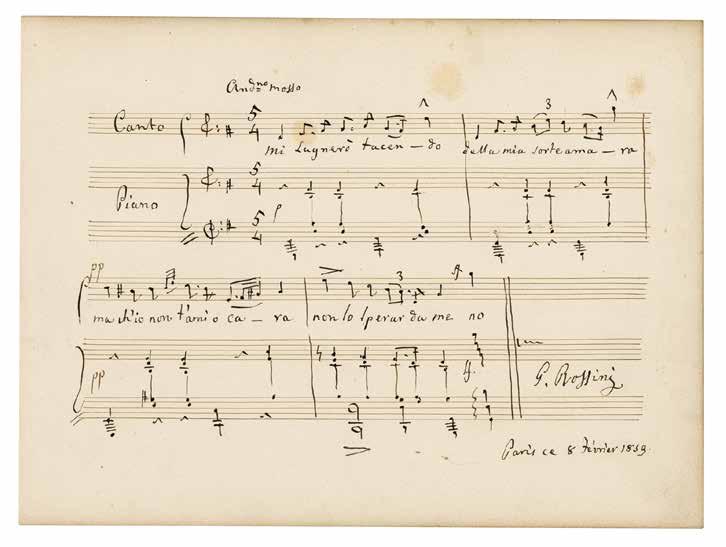 And.no mosso
3
Canto 5 4
Mi Lagnerò tacen-do della mia sorte ama-ra
Piano 5 4 p
5 4
pp 3
ma ch'io non t'ami o ca-ra non lo sperar da me no
pp
G. Rossini
Paris ce 8 Février 1859.